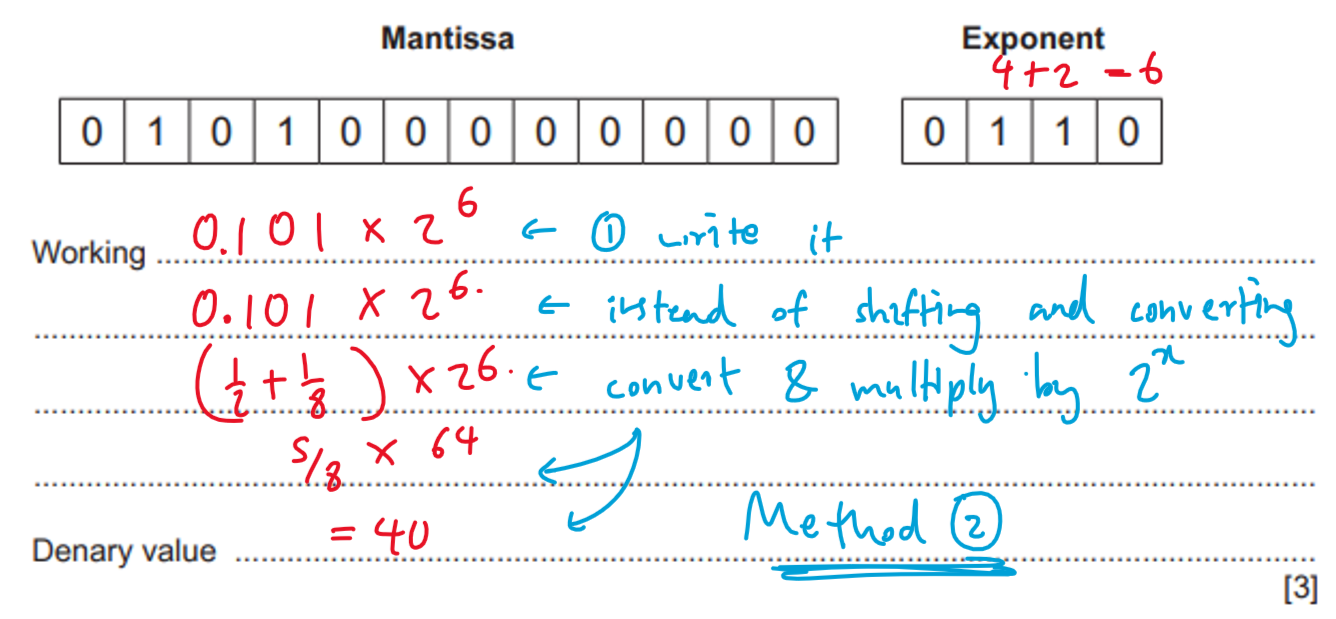 Mantissa Exponent
4+2 = 6
0 1 0 1 0 0 0 0 0 0 0 0 0 1 1 0
Working 0.101 × 2^6 ← ① write it
0.101 × 2^6. ← instead of shifting and converting
(1/2 + 1/8) × 26. ← convert & multiply by 2^x
5/8 × 64
Denary value = 40 Method ②
[3]